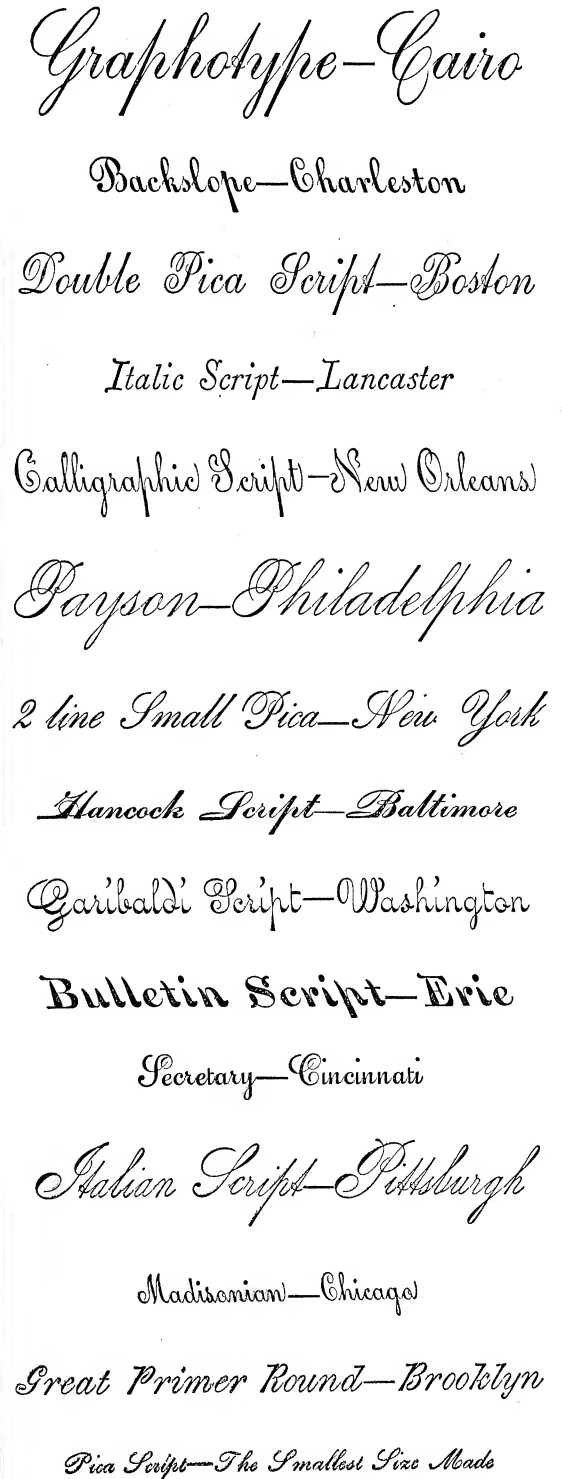 Graphotype—Cairo
Backslope—Charleston
Double Pica Script—Boston
Italic Script—Lancaster
Calligraphic Script—New Orleans
Payson—Philadelphia
2 line Small Pica—New York
Hancock Script—Baltimore
Garibaldi Script—Washington
Bulletin Script—Erie
Secretary—Cincinnati
Italian Script—Pittsburgh
Madisonian—Chicago
Great Primer Round—Brooklyn
Pica Script—The Smallest Size Made